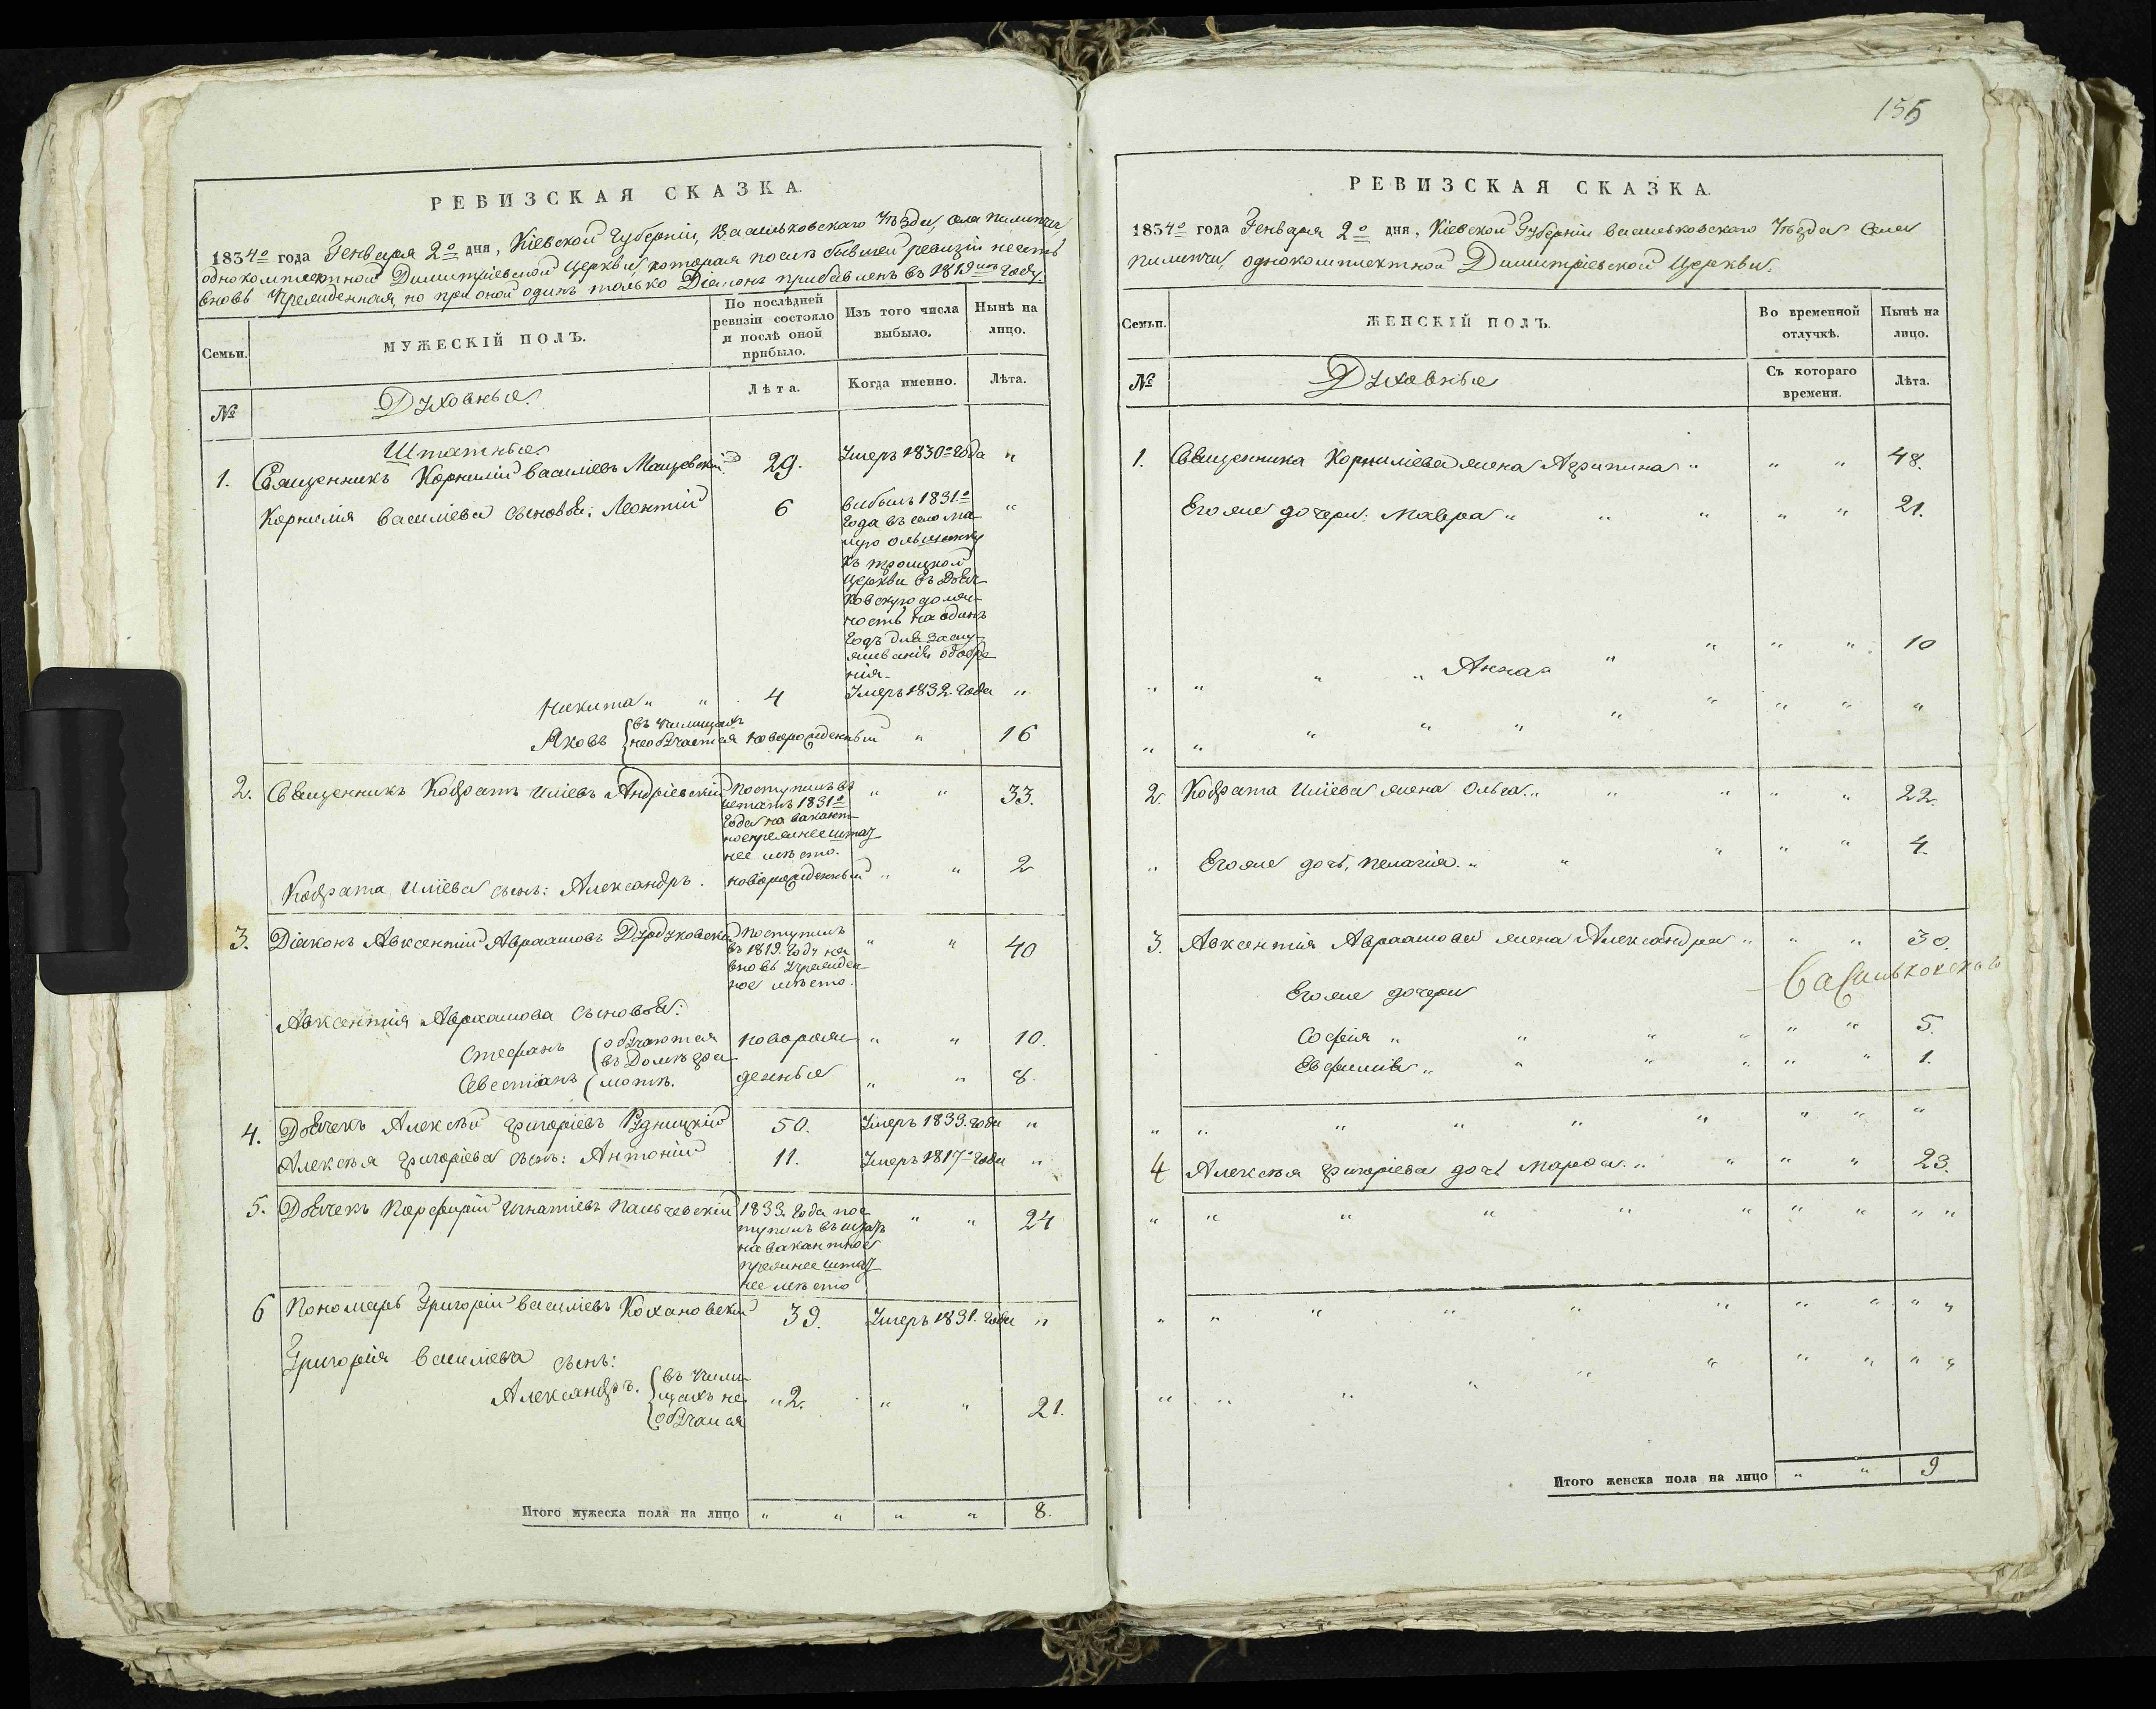 РЕВИЗСКАЯ СКАЗКА.
1834го года Генваря 2го дня, Кіевской Губерніи, Васильковскаго Уѣзда, Села Пилипчи
однокомплектной Димитріевской Церкви, которая послѣ бывшей ревизіи не есть
вновь Учрежденная, но при оной одинъ только Діаконъ прибавленъ въ 1819мъ Году.
Семьи.
МУЖЕСКІЙ ПОЛЪ.
По послѣдней
ревизіи состояло
и послѣ оной
прибыло.
Изъ того числа
выбыло.
Нынѣ на
лицо.
№
Духовные.
Лѣта.
Когда именно.
Лѣта.
Штатные
1. Священникъ Корнилій Василіевъ 29. Умеръ 1830го Года "
Корнилія Василіева Сыновья: Леонтій 6 выбылъ 1831го "
Года въ село Ма-
лую Ольшанку
къ троицкой
Церкви въ Дьяч-
ковскую долж-
ность на одинъ
Годъ для заслу-
живанія одобре-
нія.
Никита " " 4 Умеръ 1832 Года "
Яковъ въ Училищахъ
необучается новорожденный " 16
2. Священникъ Кодратъ Иліевъ Андріевскій Поступилъ въ " " 33.
штатъ 1831го
Года на вакант-
ное прежнее штат-
нее мѣсто.
Кодрата Иліева сынъ: Александръ. новорожденный " " 2
3. Діаконъ Авксентій Авраамовъ Поступилъ " " 40
въ 1819. Году на
вновь Учрежден-
ное мѣсто.
Авксентія Авраамова Сыновья:
Стефанъ обучаются новорож- " " 10.
въ Домѣ гра-
Севестіанъ мотѣ. денные " " 8.
4. Дьячекъ Алексѣй Григоріевъ Рудницкій 50. Умеръ 1833. Года "
Алексѣя Григоріева сынъ: Антоній 11. Умеръ 1817го Года "
5. Дьячекъ Порфирій Игнатіевъ Пальчевскій 1833. Года пос- " " 24
тупилъ въ штатъ
на вакантное
прежнее штат-
нее мѣсто
6 Пономарь Григорій Василіевъ Кохановскій 39. Умеръ 1831. Года "
Григорія Василіева сынъ:
Александръ. въ Учили-
щахъ не " 2. " " 21.
обучался
Итого мужеска пола на лицо " " " " 8.
155
РЕВИЗСКАЯ СКАЗКА.
1834го года Генваря 2го дня, Кіевской Губерніи Васильковскаго Уѣзда Села
Пилипчи, однокомплектной Димитріевской Церкви.
Семьи.
ЖЕНСКІЙ ПОЛЪ.
Во временной
отлучкѣ.
Нынѣ на
лицо.
№
Духовные
Съ котораго
времени.
Лѣта.
1. Священника Корниліева жена Агрипина " " " 48.
Его же дочери: Мавра " " " " " 21.
" " " " Анна " " " " " 10
" " " " " " " " " "
2. Кодрата Иліева жена Ольга. " " " " " 22.
" Его же дочь, Пелагія. " " " " " 4.
3. Авксентія Авраамова жена Александра " " " 30.
Его же дочери
Васильковскаго
Софія " " " " " " 5.
Евфимія " " " " " " 1.
" " " " " " " " "
4 Алексѣя Григоріева дочь Марфа. " " " " 23.
" " " " " " " " " "
" " " " " " " " " "
" " " " " " " " " "
Итого женска пола на лицо " " 9